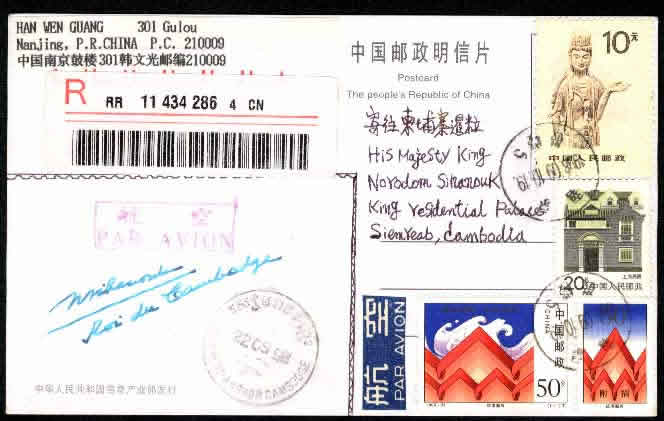 HAN WEN GUANG 301 Gulou
Nanjing, P.R.CHINA P.C. 210009
中国南京鼓楼301韩文光邮编210009
R
RR 11 434 286 4 CN
中国邮政明信片
Postcard
The people's Republic of China
寄往柬埔寨暹粒
His Majesty King
Norodom Sihanouk
King residential Palace
Siemreab, Cambodia
10元
中国人民邮政
20分
中国人民邮政
航空
PAR AVION
Roi du Cambodge
航空
PAR AVION
中国邮政
CHINA
50分
附捐
中华人民共和国信息产业部发行